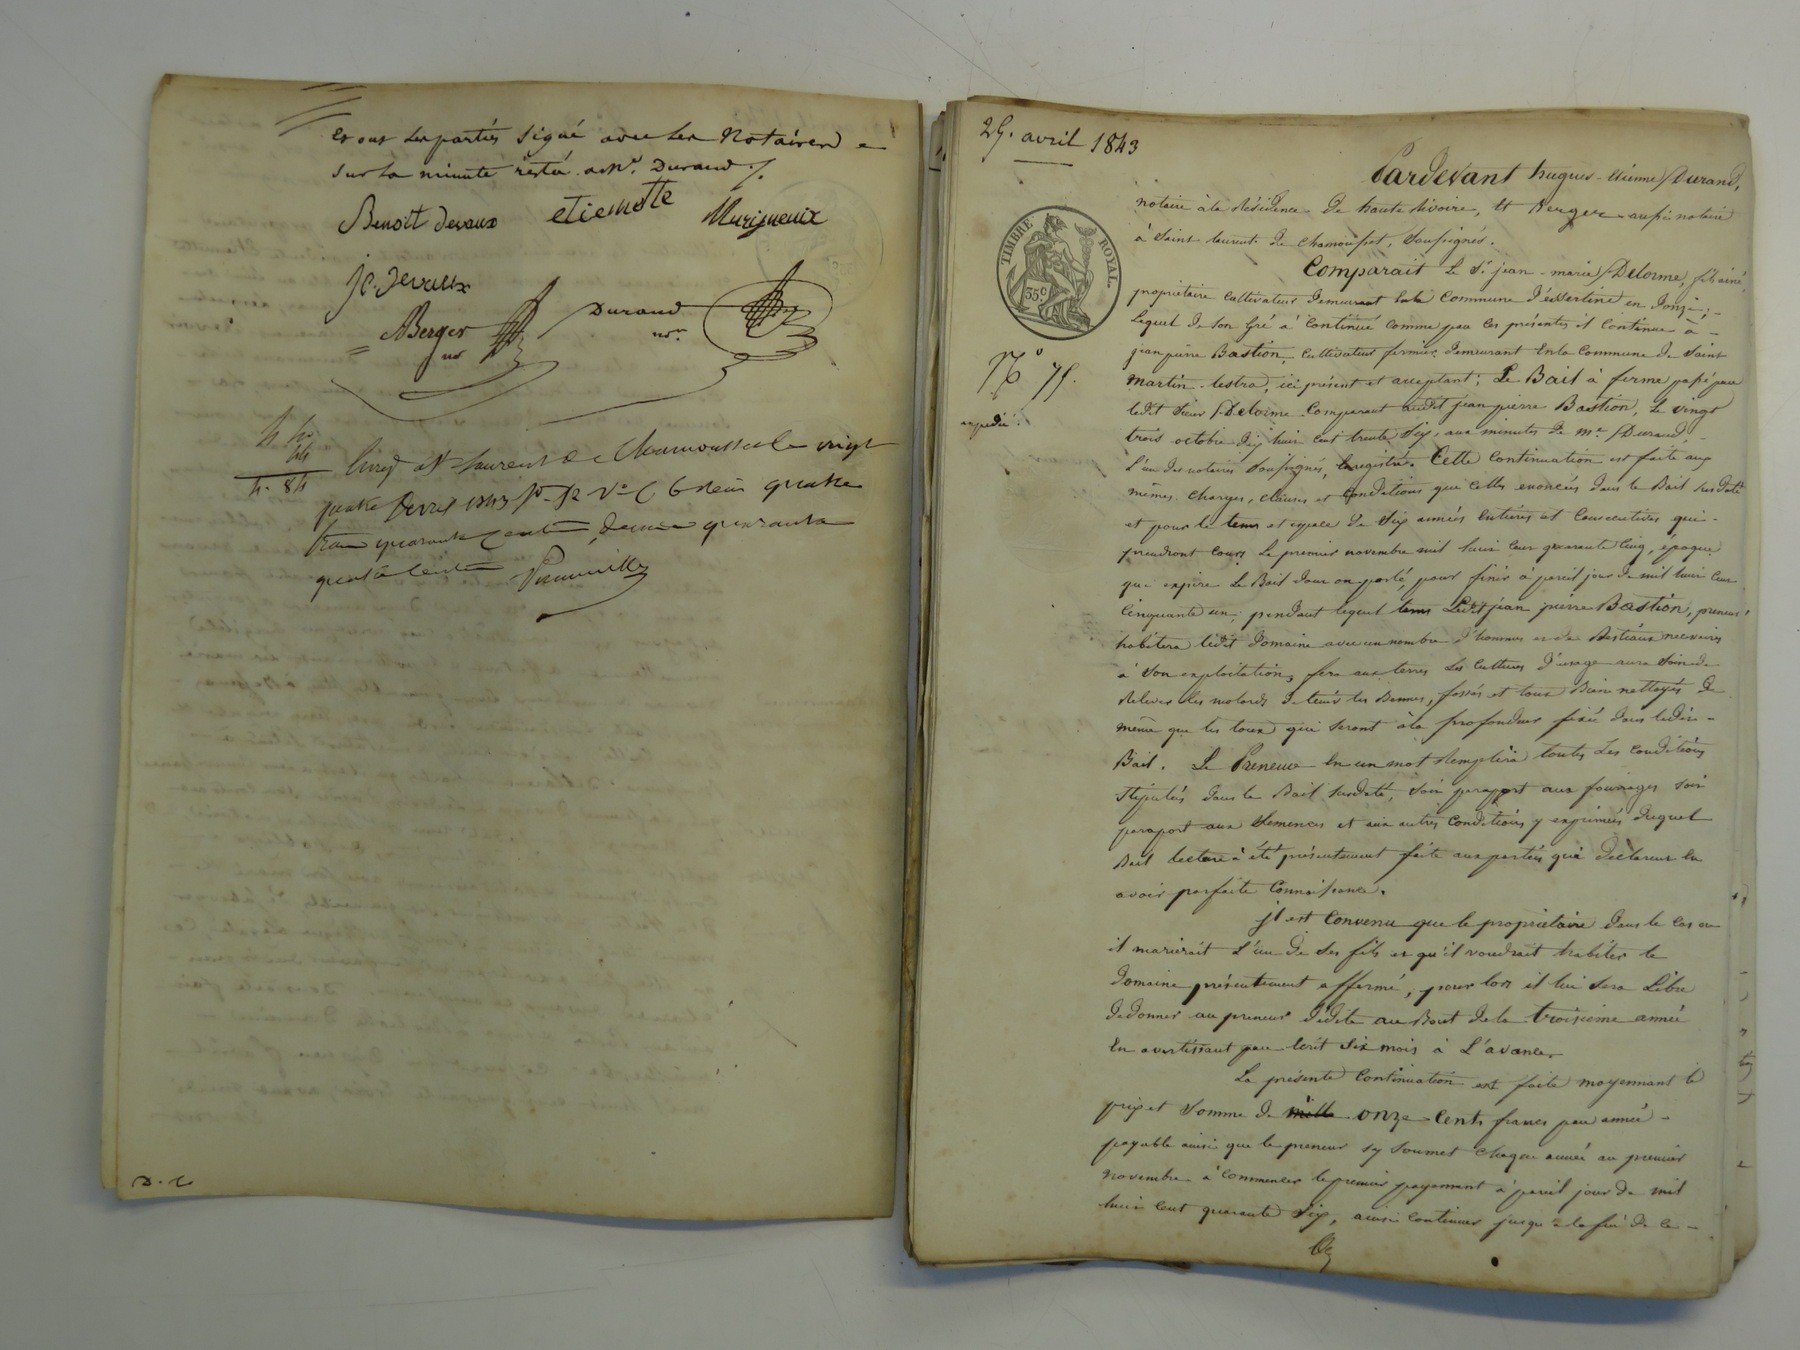 et ont les parties signé avec les Notaires
sur la minute restée à Me. Durand ./.
Benoît Devaux etiemble Murigneux
jc. Devaux
ABerger Durand
nre nre.
4 40
44
4. 84
St Laurent de Chamousset le vingt
quatre avril 1843 fo. 52 Vo C 6 reçu quatre
francs quarante centimes, décime quarante
quatre centimes
25. avril 1843
Pardevant hugues-Etienne Durand,
notaire à la Résidence de haute Rivoire, Et Berger aussi notaire
à Saint Laurent de Chamousset, Soussignés.
TIMBRE ROYAL
35c
Comparait le Sr. jean-marie Delorme, fils ainé,
propriétaire cultivateur demeurant En la Commune d'Essertine en Donzy,
Lequel de son Gré a Continué comme par ces présentes il Continue à
jean pierre Bastion, cultivateur fermier, demeurant En la Commune de Saint
No 75.
martin-lestra, ici présent et acceptant; Le Bail à ferme passé par
expédié
ledit Sieur Delorme comparant audit jean pierre Bastion, Le vingt
trois octobre dix huit cent trente Six, aux minutes de me. Durand,
L'un des notaires Soussignés, Enregistré. Cette Continuation est faite aux
mêmes charges, clauses et Conditions que celles enoncées dans le Bail Susdaté
et pour le tems et espace de Six années Entières et Consecutives qui
prendront cours le premier novembre mil huit cent quarante cinq, époque
que expire le Bail dont on parle, pour finir à pareil jour de mil huit cent
Cinquante un; pendant lequel tems Ledit jean pierre Bastion, preneur
habitera ledit Domaine avec un nombre d'hommes et de Bestiaux necessaires
à Son exploitation, fera aux terres Les cultures d'usage aura Soin de
Relever les molards de tenir les Biennes, fossés et tous Bien nettoyés de
même que les qui Seront à la profondeur fixée dans ledit
Bail. Le Preneur En un mot Remplira toutes Les Conditions
Stipulées dans le Bail Susdaté, Soit parapport aux fourrages Soit
paraport aux Semences et aux autres Conditions y exprimées duquel
Bail lecture à été présentement faite aux parties qui déclarent En
avoir parfaite Connaissance.
jl est Convenu que le propriétaire dans le cas ou
il marierait L'un de Ses fils et qu'il voudrait habiter le
Domaine présentement affermé, pour lors il lui Sera Libre
de donner au preneur Dédite au Bout de la troisieme année
En avertissant par Ecrit Six mois à L'avance.
La présente Continuation est faite moyennant le
prix et Somme de mille onze Cents francs par année
payable ainsi que le preneur sy Soumet chaque année au premier
novembre à Commencer le premier payement à pareil jour de mil
huit cent quarante Six, ainsi Continuer jusqu'à la fin de ce